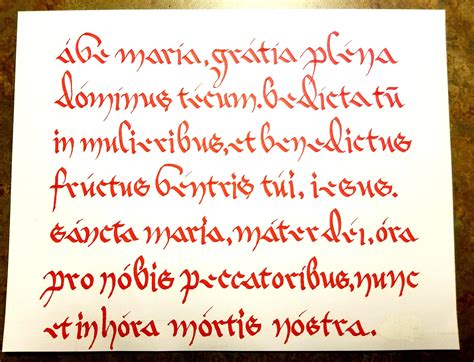 ábe maría, grátia pléna
dóminus técum. bedicta tū
in mulieribus, et benedictus
frúctus béntris túi, iesus.
sáncta maría, máter déi, óra
pro nóbis peccatoribus, nunc
et in hóra mórtis nóstra.